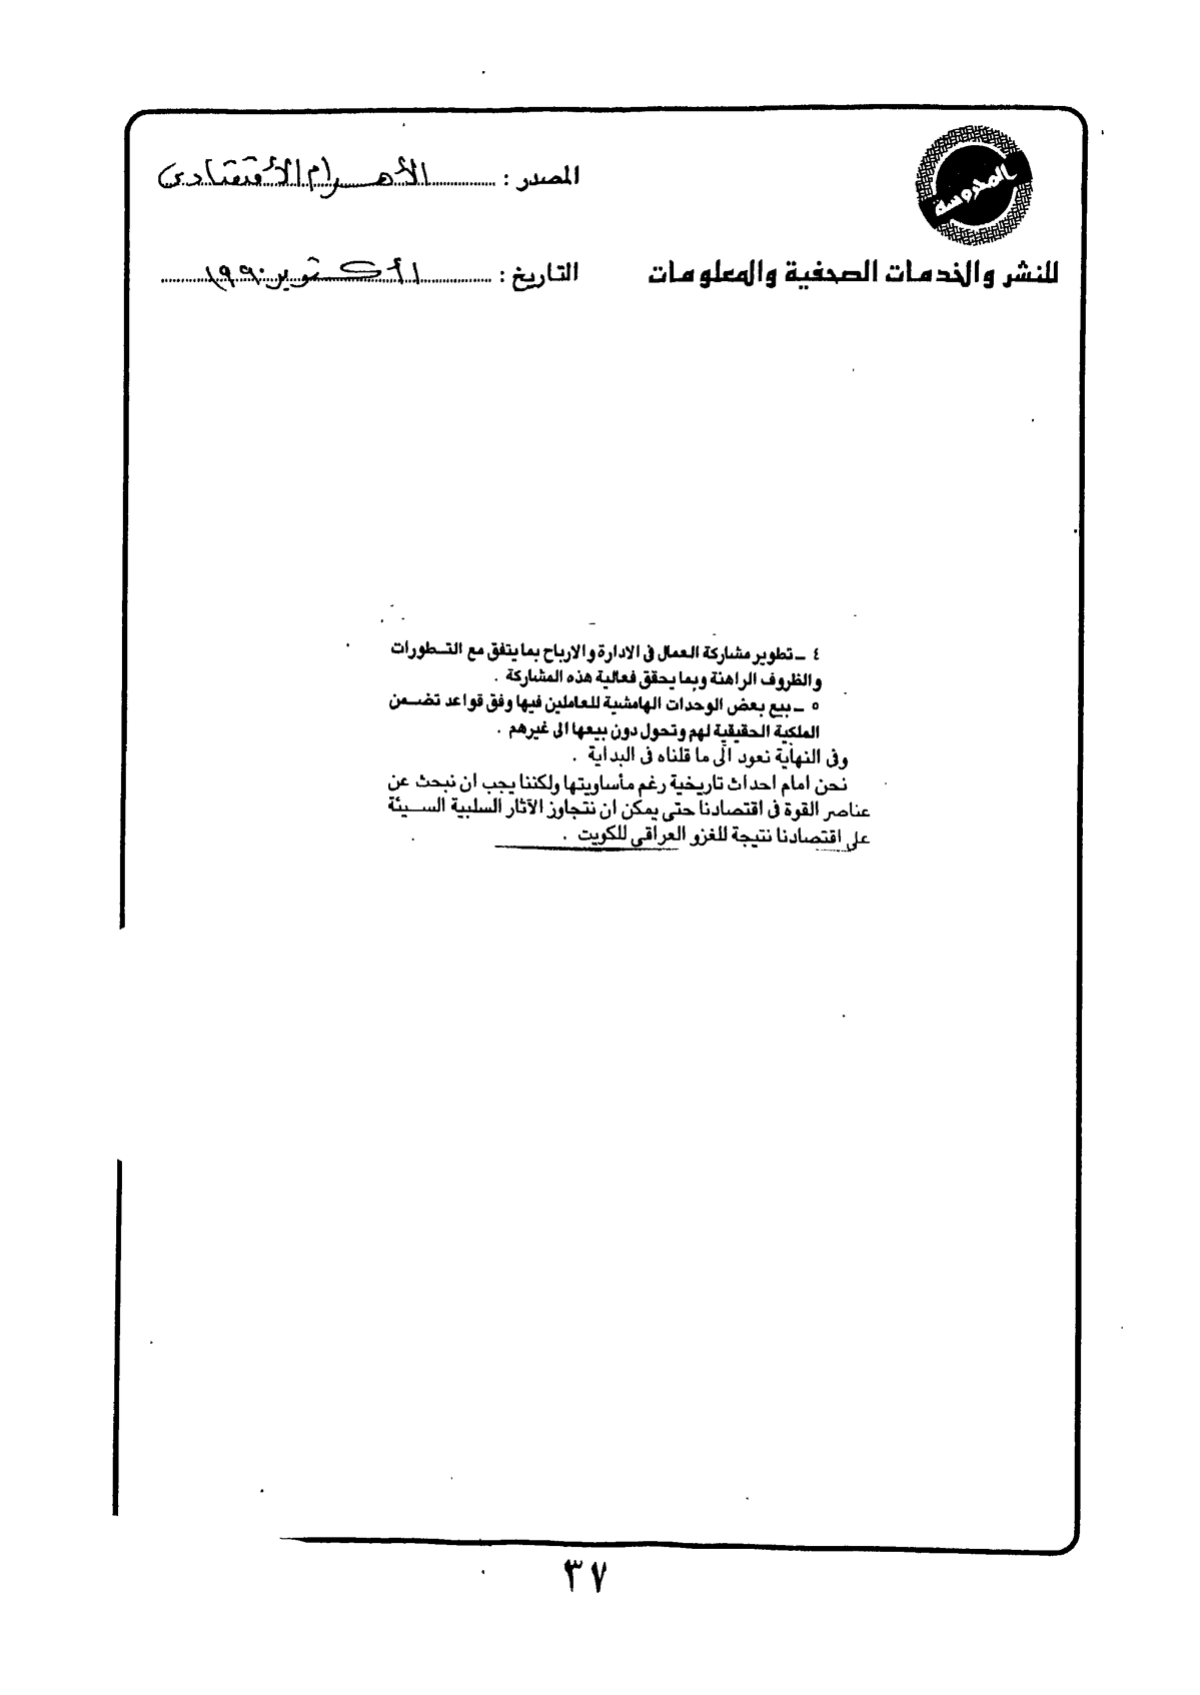 المدروسة
المصدر : الأهرام الاقتصادى
للنشر والخدمات الصحفية والمعلومات
التاريخ : ١ أكتوبر ١٩٩٠
٤ ــ تطوير مشاركة العمال فى الادارة والارباح بما يتفق مع التـطورات
والظروف الراهنة وبما يحقق فعالية هذه المشاركة .
٥ ــ بيع بعض الوحدات الهامشية للعاملين فيها وفق قواعد تضـمن
الملكية الحقيقية لهم وتحول دون بيعها الى غيرهم .
وفى النهاية نعود الى ما قلناه فى البداية .
نحن امام احداث تاريخية رغم مأساويتها ولكننا يجب ان نبحث عن
عناصر القوة فى اقتصادنا حتى يمكن ان نتجاوز الآثار السلبية السـيئة
على اقتصادنا نتيجة للغزو العراقى للكويت .
٣٧